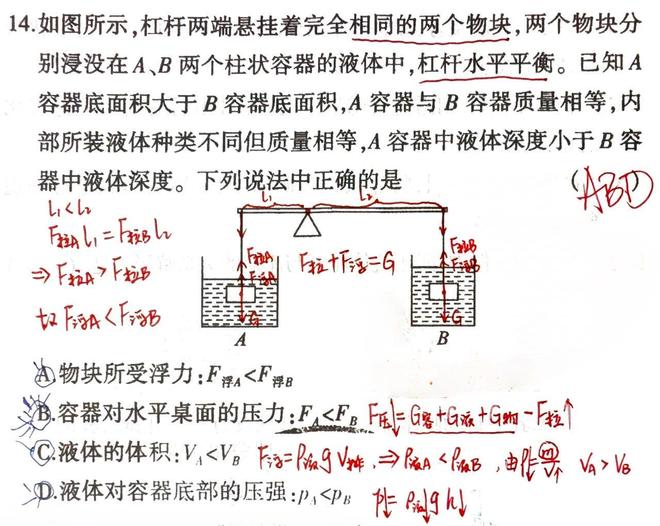 14.如图所示,杠杆两端悬挂着完全相同的两个物块,两个物块分
别浸没在A、B两个柱状容器的液体中,杠杆水平平衡。已知A
容器底面积大于B容器底面积,A容器与B容器质量相等,内
部所装液体种类不同但质量相等,A容器中液体深度小于B容
器中液体深度。下列说法中正确的是 ( ABD )
L₁ L₂
L₁<L₂
F拉A L₁=F拉B L₂
⇒F拉A>F拉B
故F浮A<F浮B
F拉A
F浮A
G
F拉+F浮=G
F拉B
F浮B
G
A B
A.物块所受浮力:F浮A<F浮B
B.容器对水平桌面的压力:F_A<F_B F压↓=G容+G液+G物-F拉↑
C.液体的体积:V_A<V_B F浮=ρ液gV排,⇒ρ液A<ρ液B,由ρ↓=m/V↑ V_A>V_B
D.液体对容器底部的压强:p_A<p_B p↓=ρ液↓gh↓